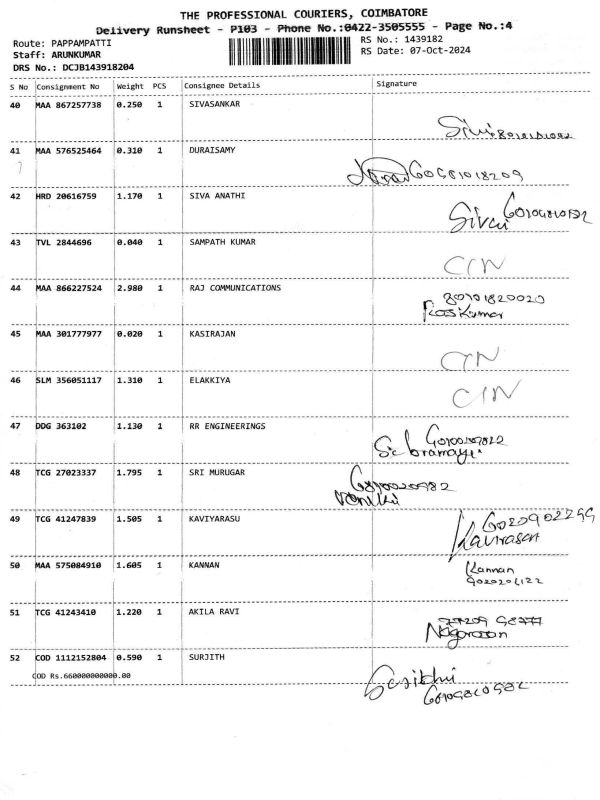 THE PROFESSIONAL COURIERS, COIMBATORE
Delivery Runsheet - P103 - Phone No.:0422-3505555 - Page No.:4
Route: PAPPAMPATTI
Staff: ARUNKUMAR
DRS No.: DCJB143918204
RS No.: 1439182
RS Date: 07-Oct-2024
S No Consignment No Weight PCS Consignee Details Signature
40 MAA 867257738 0.250 1 SIVASANKAR
41 MAA 576525464 0.310 1 DURAISAMY
42 HRD 20616759 1.170 1 SIVA ANATHI
43 TVL 2844696 0.040 1 SAMPATH KUMAR
44 MAA 866227524 2.980 1 RAJ COMMUNICATIONS
45 MAA 301777977 0.020 1 KASIRAJAN
46 SLM 356051117 1.310 1 ELAKKIYA
47 DDG 363102 1.130 1 RR ENGINEERINGS
48 TCG 27023337 1.795 1 SRI MURUGAR
49 TCG 41247839 1.505 1 KAVIYARASU
50 MAA 575084910 1.605 1 KANNAN
Kannan
51 TCG 41243410 1.220 1 AKILA RAVI
52 COD 1112152804 0.590 1 SURJITH
COD Rs.660000000000.00